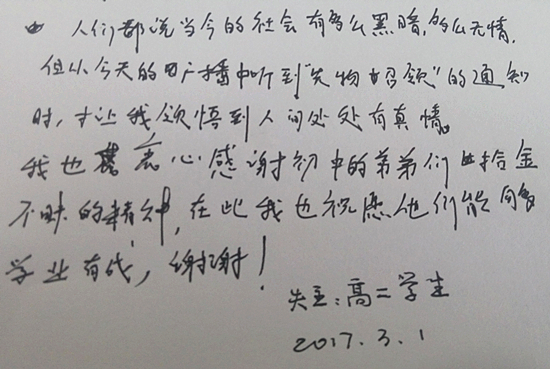 人们都说当今的社会有多么黑暗,多么无情,
但从今天的广播中听到"失物招领"的通知
时,才让我领悟到人间处处有真情。
我也衷心感谢初中的弟弟们拾金
不昧的精神,在此我也祝愿他们能
学业有成,谢谢!
失主:高二学生
2017.3.1